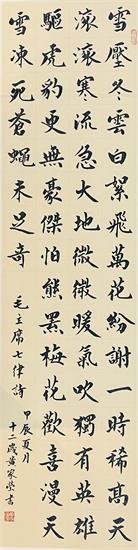 雪壓冬雲白絮飛萬花紛謝一時稀高天
滾滾寒流急大地微微暖氣吹獨有英雄
驅虎豹更無豪傑怕熊羆梅花歡喜漫天
雪凍死蒼蠅未足奇
毛主席七律詩
甲辰夏月
十二歲黃家書